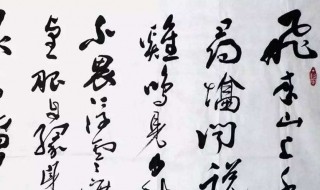 飛来山上千
尋塔聞說
雞鳴見日升
不畏浮雲遮
望眼自緣身